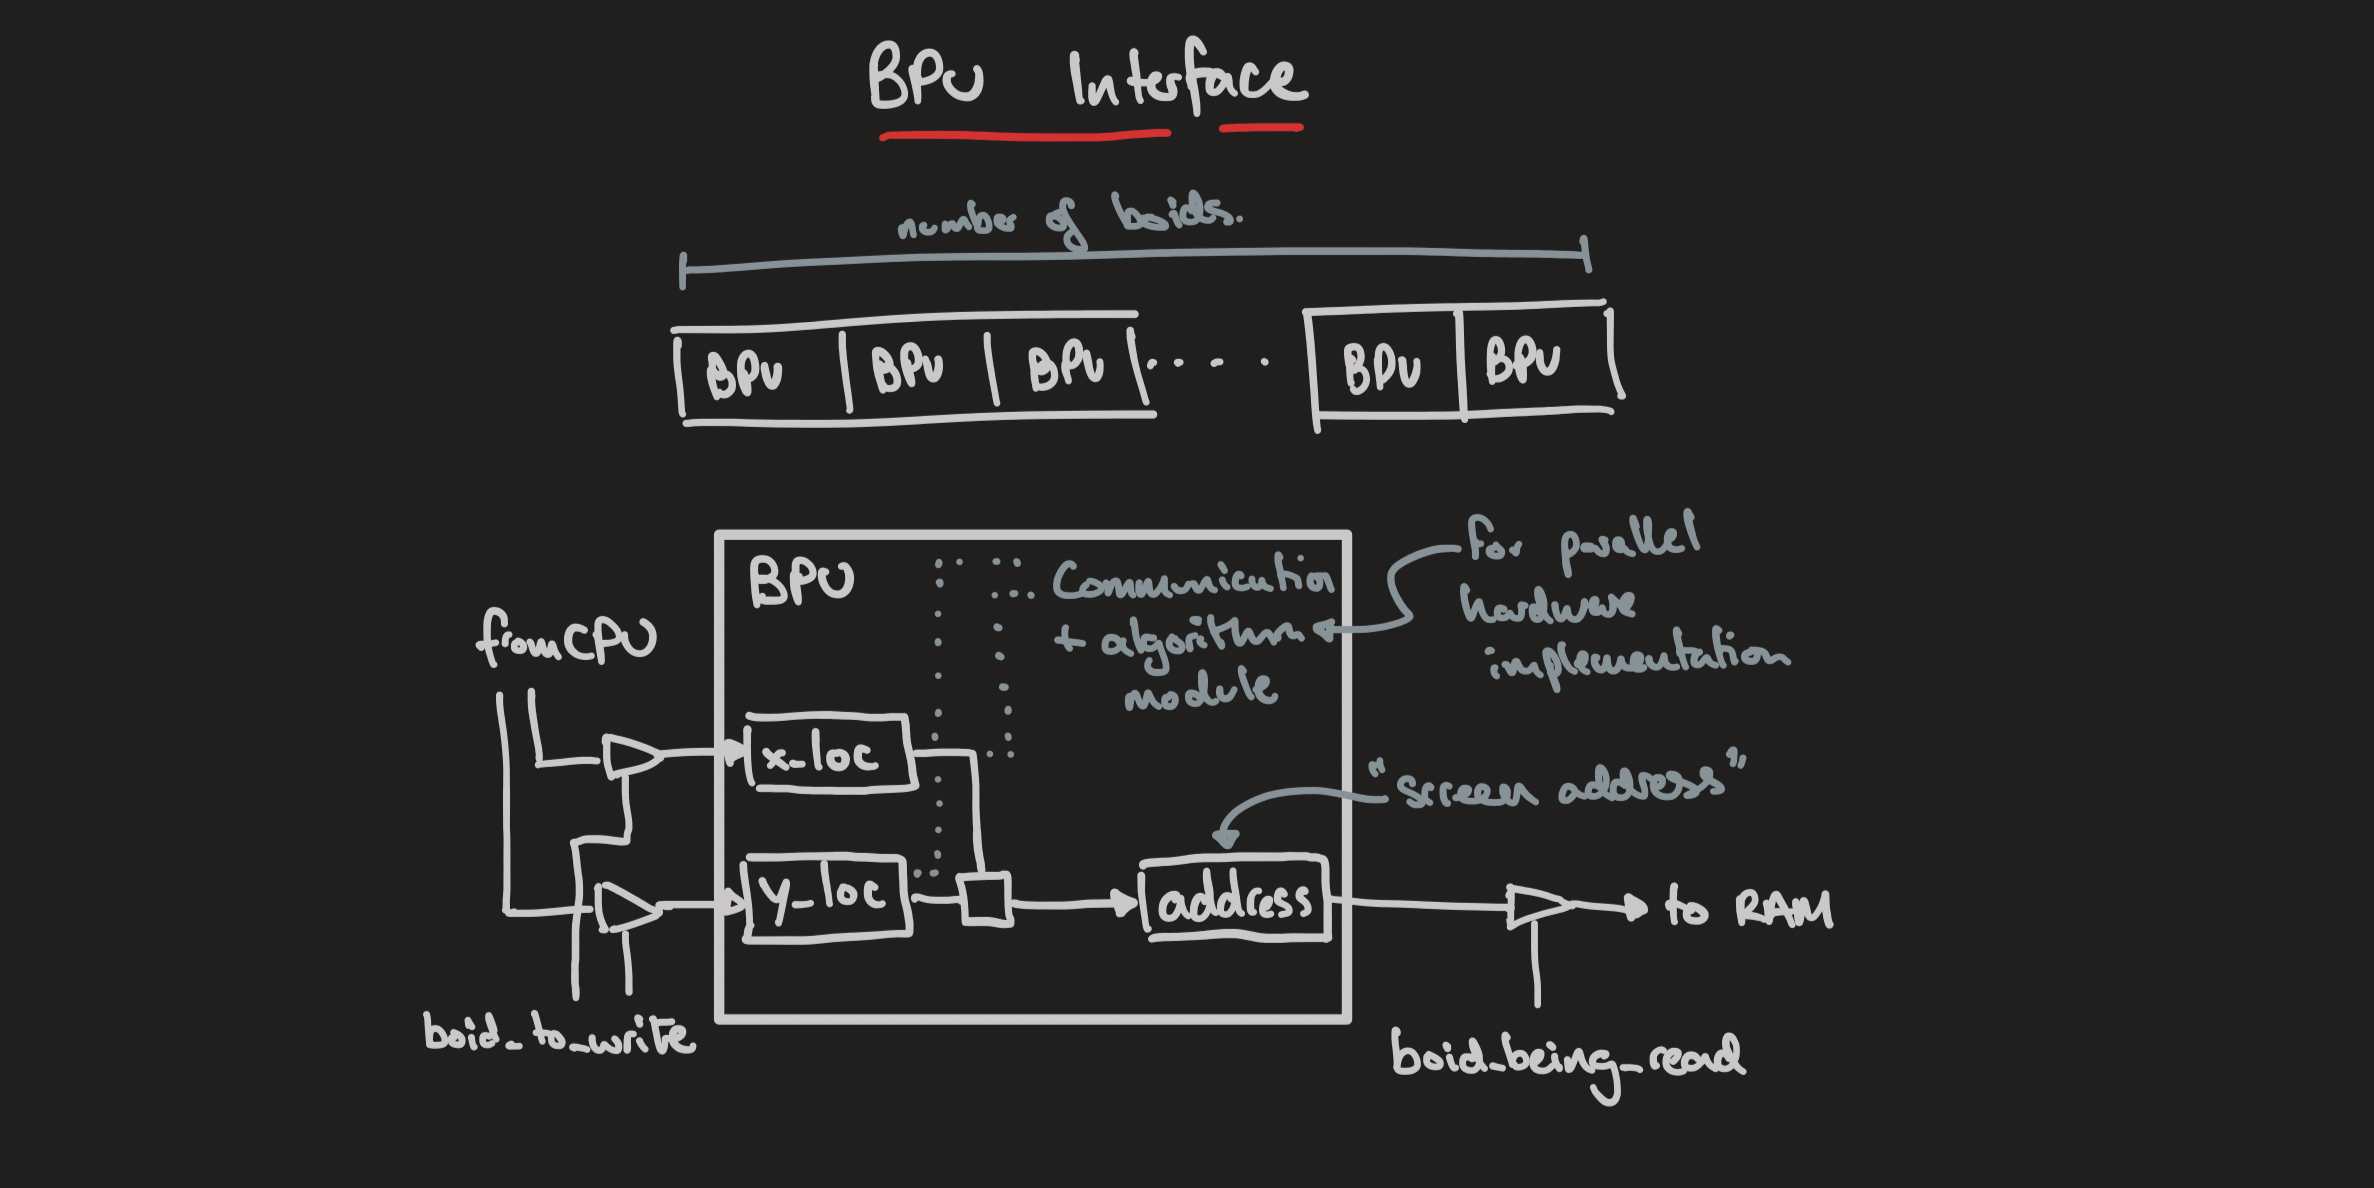 BPU Interface
number of boids.
BPU BPU BPU .... BPU BPU
BPU
Communication
+ algorithm
module
for parallel
hardware
implementation
from CPU
x_loc
"screen address"
y_loc
address
to RAM
boid_to_write
boid_being_read